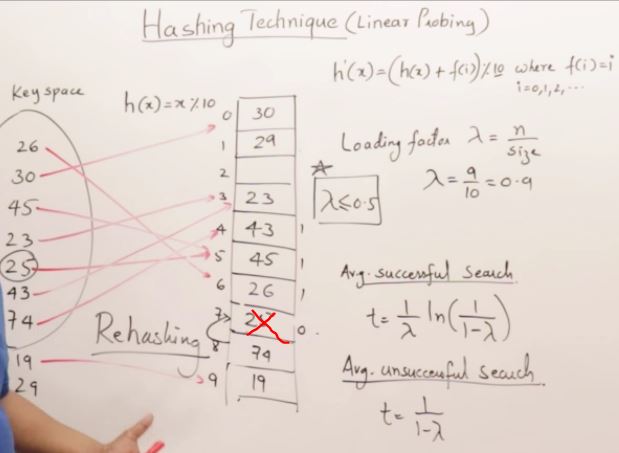 Hashing Technique (Linear Probing)
h'(x)=(h(x) + f(i))%10 where f(i)=i
i=0,1,2,...
Key space
h(x)=x%10
26
30
45
23
25
43
74
19
29
0 30
1 29
2
3 23
4 43 1
5 45 1
6 26 1
7 0.
8 74
9 19
Rehashing
Loading factor λ = n/size
λ = 9/10 = 0.9
λ≤0.5
Avg. successful search
t = 1/λ ln(1/1-λ)
Avg. unsuccessful search
t = 1/1-λ